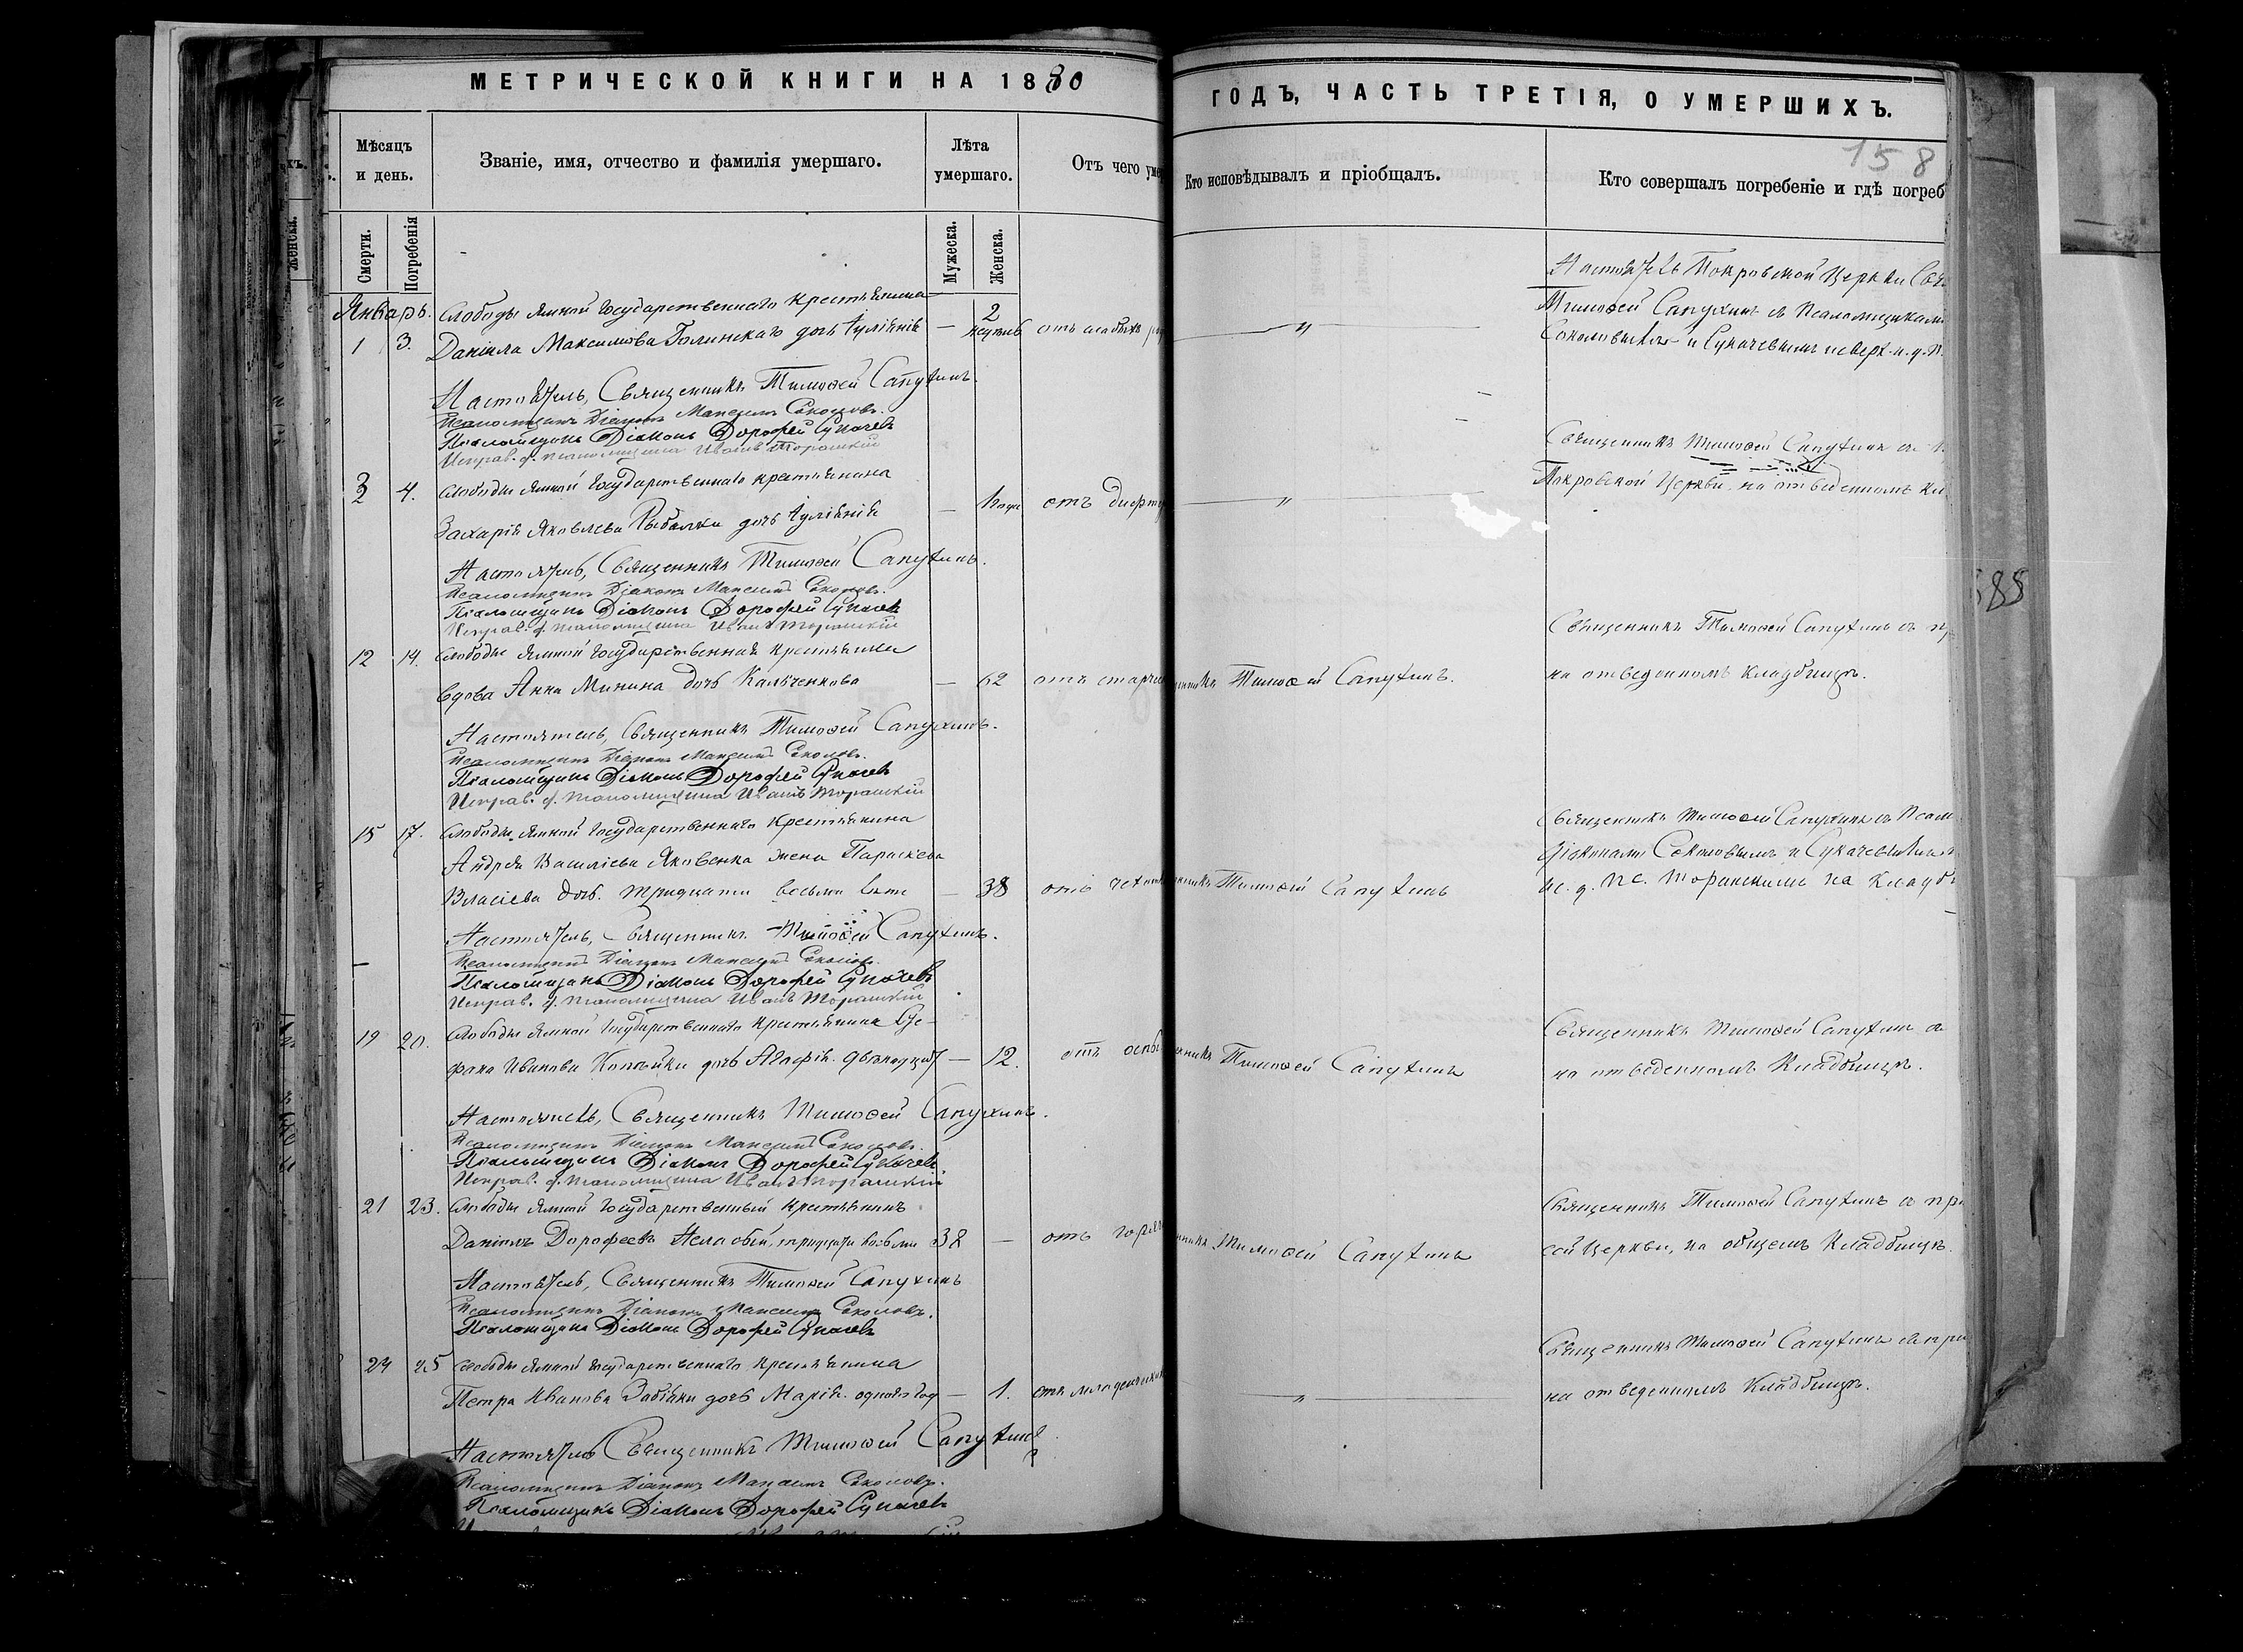 МЕТРИЧЕСКОЙ КНИГИ НА 1880
ГОДЪ, ЧАСТЬ ТРЕТІЯ, О УМЕРШИХЪ.
158
Мѣсяцъ и день.
Званіе, имя, отчество и фамилія умершаго.
Лѣта умершаго.
Отъ чего уме
Кто исповѣдывалъ и пріобщалъ.
Кто совершалъ погребеніе и гдѣ погреб
Женска.
Смерти.
Погребенія
Мужеска.
Женска.
Январь.
Слободы Ямной Государственнаго крестьянина
2
1 3. Даніила Максимова Голинскаго дочь Іулянія — отъ слабыхъ "
Настоятель Покровской Церкви
Тимоѳей Сапухинъ съ Псаломщиками
Соколовымъ и Сукачевымъ
Настоятель, Священникъ Тимоѳей Сапухинъ.
Псаломщикъ Діаконъ Максимъ Соколовъ.
Псаломщикъ Діаконъ Дорофей Сукачевъ
Исправ. д. псаломщика Иванъ Торанскій
2 4. Слободы Ямной Государственнаго крестьянина
Захарія Яковлева Рыбалки дочь Іулянія — отъ "
Священникъ Тимоѳей Сапухинъ съ
Покровской Церкви на отведенномъ
Настоятель, Священникъ Тимоѳей Сапухинъ.
Псаломщикъ Діаконъ Максимъ Соколовъ.
Псаломщикъ Діаконъ Дорофей Сукачевъ
Исправ. д. псаломщика Иванъ Торанскій
12 14. Слободы Ямной Государственная крестьянка
вдова Анна Минина дочь Кальченкова — 62 отъ старч Тимоѳей Сапухинъ.
Священникъ Тимоѳей Сапухинъ съ пр
на отведенномъ кладбищѣ.
Настоятель, Священникъ Тимоѳей Сапухинъ.
Псаломщикъ Діаконъ Максимъ Соколовъ.
Псаломщикъ Діаконъ Дорофей Сукачевъ
Исправ. д. псаломщика Иванъ Торанскій
15 17. Слободы Ямной Государственнаго крестьянина
Андрея Василіева Яковенка жена Параскева
Власіева дочь. тридцати восьми лѣтъ — 38 отъ чахот Тимоѳей Сапухинъ
Священникъ Тимоѳей Сапухинъ съ Псалом
діаконами Соколовымъ и Сукачевымъ
и. д. пс. Торанскимъ на кладб
Настоятель, Священникъ Тимоѳей Сапухинъ.
Псаломщикъ Діаконъ Максимъ Соколовъ.
Псаломщикъ Діаконъ Дорофей Сукачевъ
Исправ. д. псаломщика Иванъ Торанскій
19 20. Слободы Ямной Государственнаго крестьянина Сте-
фана Иванова Копѣйки дочь Агафія. двѣнадцати — 12. отъ оспы Тимоѳей Сапухинъ
Священникъ Тимоѳей Сапухинъ съ
на отведенномъ кладбищѣ.
Настоятель, Священникъ Тимоѳей Сапухинъ.
Псаломщикъ Діаконъ Максимъ Соколовъ.
Псаломщикъ Діаконъ Дорофей Сукачевъ.
Исправ. д. псаломщика Иванъ Торанскій
21 23. Слободы Ямной Государственный крестьянинъ
Даніилъ Дорофеевъ тридцати восьми 38 — отъ горяч Тимоѳей Сапухинъ
Священникъ Тимоѳей Сапухинъ съ при
сей Церкви, на общемъ кладбищѣ.
Настоятель, Священникъ Тимоѳей Сапухинъ
Псаломщикъ Діаконъ Максимъ Соколовъ.
Псаломщикъ Діаконъ Дорофей Сукачевъ
24 25 Слободы Ямной Государственнаго крестьянина
Петра Иванова дочь Марія. одного год — 1. отъ младенческ "
Священникъ Тимоѳей Сапухинъ съ при
на отведенномъ кладбищѣ.
Настоятель Священникъ Тимоѳей Сапухинъ
Псаломщикъ Діаконъ Максимъ Соколовъ.
Псаломщикъ Діаконъ Дорофей Сукачевъ